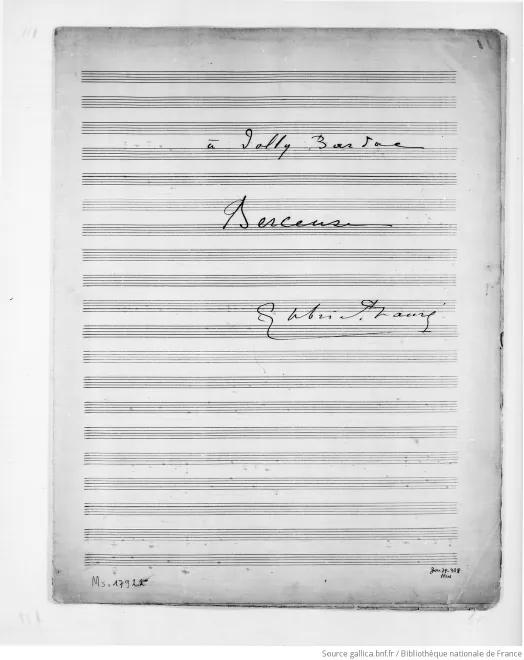 à Dolly Bardac
Berceuse
Gabriel Fauré
Ms. 17922
Source gallica.bnf.fr / Bibliothèque nationale de France